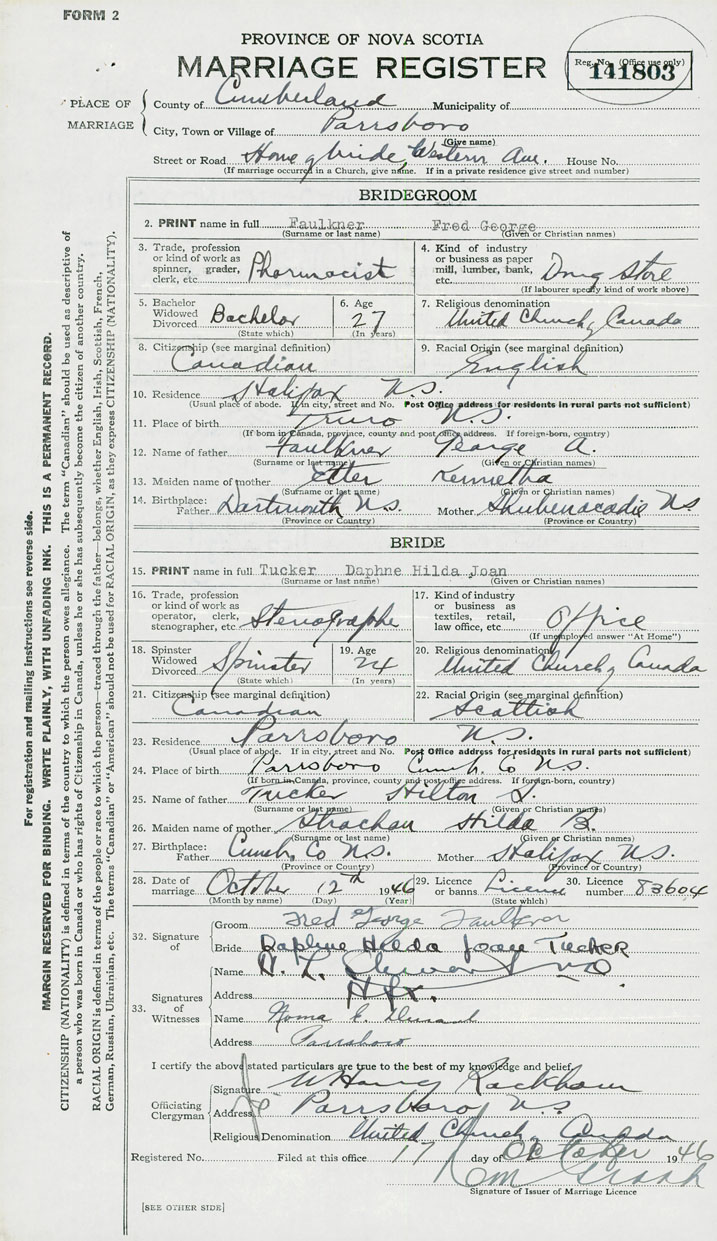 FORM 2
PROVINCE OF NOVA SCOTIA
MARRIAGE REGISTER
Reg. No. (Office use only)
141803
PLACE OF MARRIAGE
County of Cumberland Municipality of
City, Town or Village of Parrsboro
(Give name)
Street or Road Home of bride, Western Ave. House No.
(If marriage occurred in a Church, give name. If in a private residence give street and number)
BRIDEGROOM
2. PRINT name in full Faulkner Fred George
(Surname or last name) (Given or Christian names)
3. Trade, profession or kind of work as spinner, grader, clerk, etc. Pharmacist
4. Kind of industry or business as paper mill, lumber, bank, etc. Drug Store
(If labourer specify kind of work above)
5. Bachelor Widowed Divorced Bachelor
(State which)
6. Age 27
(In years)
7. Religious denomination
United Church of Canada
8. Citizenship (see marginal definition)
Canadian
9. Racial Origin (see marginal definition)
English
10. Residence Halifax N.S.
(Usual place of abode. If in city, street and No. Post Office address for residents in rural parts not sufficient)
11. Place of birth Truro N.S.
(If born in Canada, province, county and post office address. If foreign-born, country)
12. Name of father Faulkner George A.
(Surname or last name) (Given or Christian names)
13. Maiden name of mother Etter Kennetha
(Surname or last name) (Given or Christian names)
14. Birthplace: Father Dartmouth N.S. Mother Shubenacadie N.S.
(Province or Country) (Province or Country)
BRIDE
15. PRINT name in full Tucker Daphne Hilda Joan
(Surname or last name) (Given or Christian names)
16. Trade, profession or kind of work as operator, clerk, stenographer, etc. Stenographer
17. Kind of industry or business as textiles, retail, law office, etc. Office
(If unemployed answer "At Home")
18. Spinster Widowed Divorced Spinster
(State which)
19. Age 24
(In years)
20. Religious denomination
United Church of Canada
21. Citizenship (see marginal definition)
Canadian
22. Racial Origin (see marginal definition)
Scottish
23. Residence Parrsboro N.S.
(Usual place of abode. If in city, street and No. Post Office address for residents in rural parts not sufficient)
24. Place of birth Parrsboro Cumb. Co N.S.
(If born in Canada, province, county and post office address. If foreign-born, country)
25. Name of father Tucker Hilton
(Surname or last name) (Given or Christian names)
26. Maiden name of mother Strachan Hilda B.
(Surname or last name) (Given or Christian names)
27. Birthplace: Father Cumb. Co N.S. Mother Halifax N.S.
(Province or Country) (Province or Country)
28. Date of marriage October 12th 1946
(Month by name) (Day) (Year)
29. Licence or banns Licence
(State which)
30. Licence number 83604
32. Signature of
Groom Fred George Faulkner
Bride Daphne Hilda Joan Tucker
33. Signatures of Witnesses
Name
Address Hfx.
Name
Address Parrsboro
I certify the above stated particulars are true to the best of my knowledge and belief.
Officiating Clergyman
Signature W Harry Rackham
Address Parrsboro, N.S.
Religious Denomination United Church of Canada
Registered No. Filed at this office 17 day of October 1946
Signature of Issuer of Marriage Licence
[SEE OTHER SIDE]
For registration and mailing instructions see reverse side.
MARGIN RESERVED FOR BINDING. WRITE PLAINLY, WITH UNFADING INK. THIS IS A PERMANENT RECORD.
CITIZENSHIP (NATIONALITY) is defined in terms of the country to which the person owes allegiance. The term "Canadian" should be used as descriptive of
a person who was born in Canada or who has rights of Citizenship in Canada, unless he or she has subsequently become the citizen of another country.
RACIAL ORIGIN is defined in terms of the people or race to which the person—traced through the father—belongs, whether English, Irish, Scottish, French,
German, Russian, Ukrainian, etc. The terms "Canadian" or "American" should not be used for RACIAL ORIGIN, as they express CITIZENSHIP (NATIONALITY).